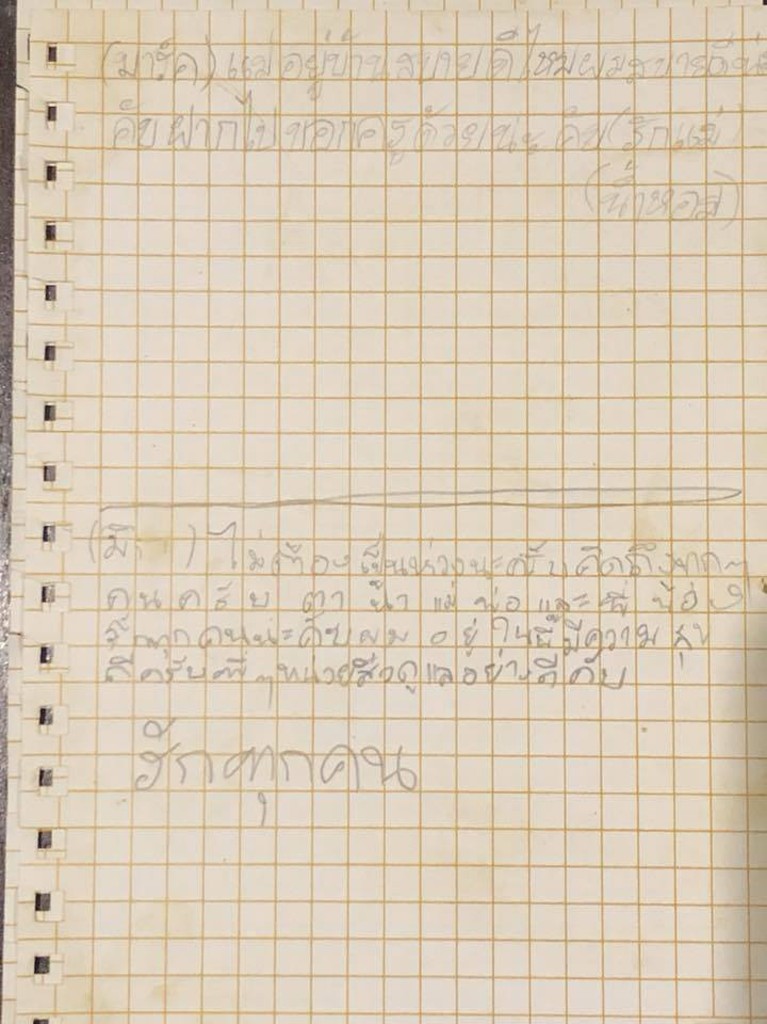 (มาร์ค) แม่อยู่บ้านสบายดีไหมผมสบายดีน่ะ
คับฝากไปบอกครูด้วยน่ะคับ(รักแม่
(น้ำหอม)
(มิ ) ไม่ต้องเป็นห่วงนะครับคิดถึงมากๆ
คุนครับ ตา น้า แม่ พ่อ และ พี่ น้อง
รักทุกคนน่ะคับผม อยู่ในนี้มีความสุข
ดีครับพี่ๆหน่วยสิวดูแลอย่างดีคับ
รักทุกคน